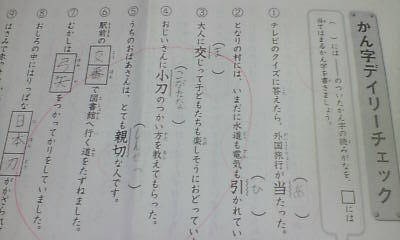 かん字デイリーチェック
（ ）には――のついたかん字の読みがなを、□には
当てはまるかん字を書きましょう。
① テレビのクイズに答えたら、外国旅行が当たった。
（あ）
② となりの村には、いまだに水道も電気も引かれてい
（ひ）
③ 大人に交じって子どもたちも楽しそうにおどってい
（ま）
④ おじいさんに小刀のつかい方を教えてもらった。
（こがたな）
⑤ うちのおばあさんは、とても親切な人です。
（しんせつ）
⑥ 駅前の交番で図書館へ行く道をたずねました。
⑦ むかしは弓矢をつかってかりをしていました。
⑧ おしろの中にはりっぱな日本刀がかざられ
⑨ はさみで